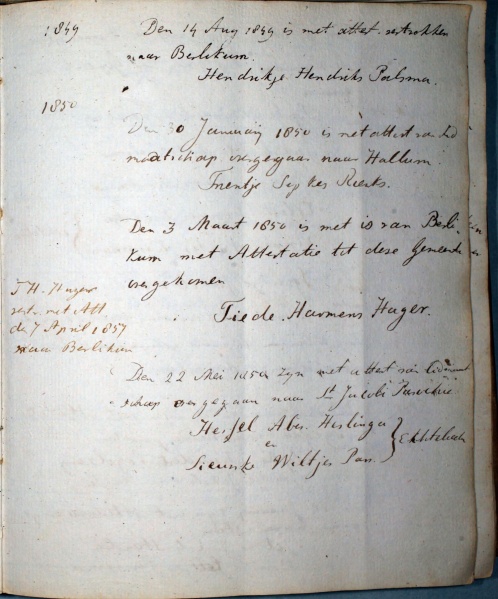 1849
Den 14 Aug 1849 is met attest. vertrokken
naar Berlikum.
Hendrikje Hendriks Palsma.
1850
Den 30 Januarij 1850 is met attest van lid
maatschap overgegaan naar Hallum
Trientje Sipkes Rienks.
Den 3 Maart 1850 is met is van Berli
kum met Attestatie tot deze Gemeente
overgekomen
Tiede Harmens Hager.
T. H. Hager
vertr. met Att
de 7 April 1857
naar Berlikum
Den 22 Mei 1850 zyn met attest van lidmaat
schap overgegaan naar St Jacobi Parochie
Hessel Abes Heslinga
en
Sieuwke Wiltjes Pars.